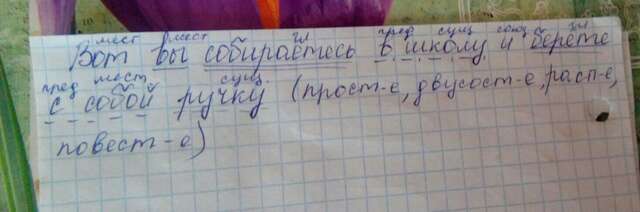 мест мест гл пред сущ союз гл
Вот вы собираетесь в школу и берёте
пред мест сущ
с собой ручку (прост-е, двусост-е, расп-е,
повест-е)